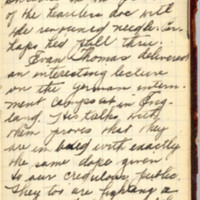 of the teachers are with
the renowned needle. Per-
haps fed full three.
Evan Thomas delivered
an interesting lecture
on the German intern-
ment camps at in Eng-
land. His talks with
them proves that they
are imbued with exactly
the same dope given
to our credulous public.
They too are fighting a